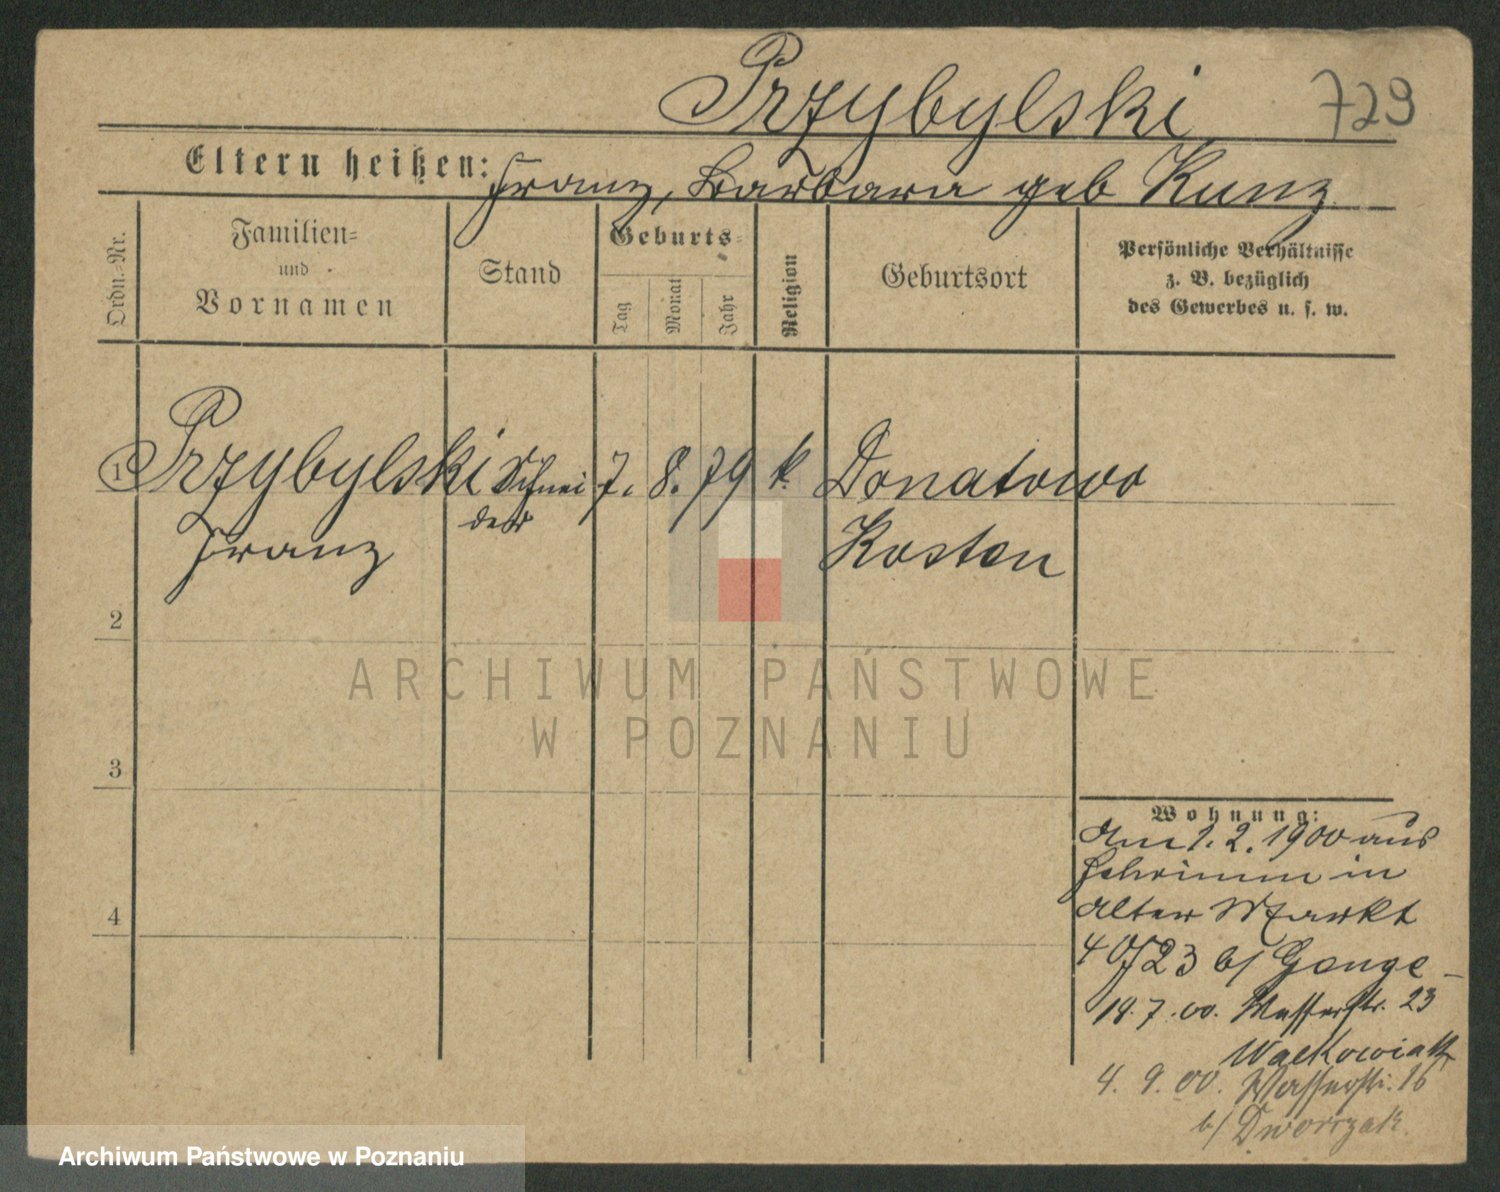 Przybylski 729
Eltern heißen: Franz, Barbara geb Kunz
Ordn.-Nr.
Familien-
und
Vornamen
Stand
Geburts-
Tag
Monat
Jahr
Religion
Geburtsort
Persönliche Verhältnisse
z. B. bezüglich
des Gewerbes u. s. w.
1 Przybylski Schnei 7. 8. 79 k. Donatowo
Franz der Kosten
2
ARCHIWUM PAŃSTWOWE
W POZNANIU
3
Wohnung:
Am 1. 2. 1900 aus
Schrimm in
Alter Markt
4
23 b/
7. 00. Wasserstr. 23
Walkowiak
4. 9. 00. Wasserstr. 16
b/ Dworzak
Archiwum Państwowe w Poznaniu